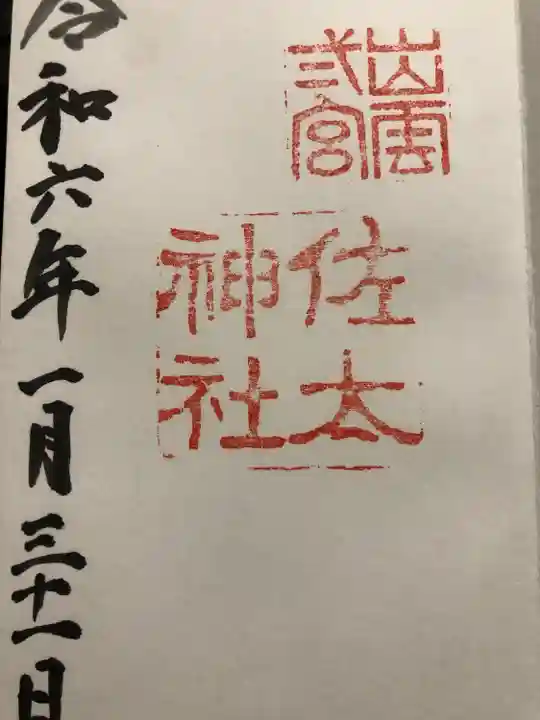 出雲
弎宮
佐太
神社
令和六年一月三十一日